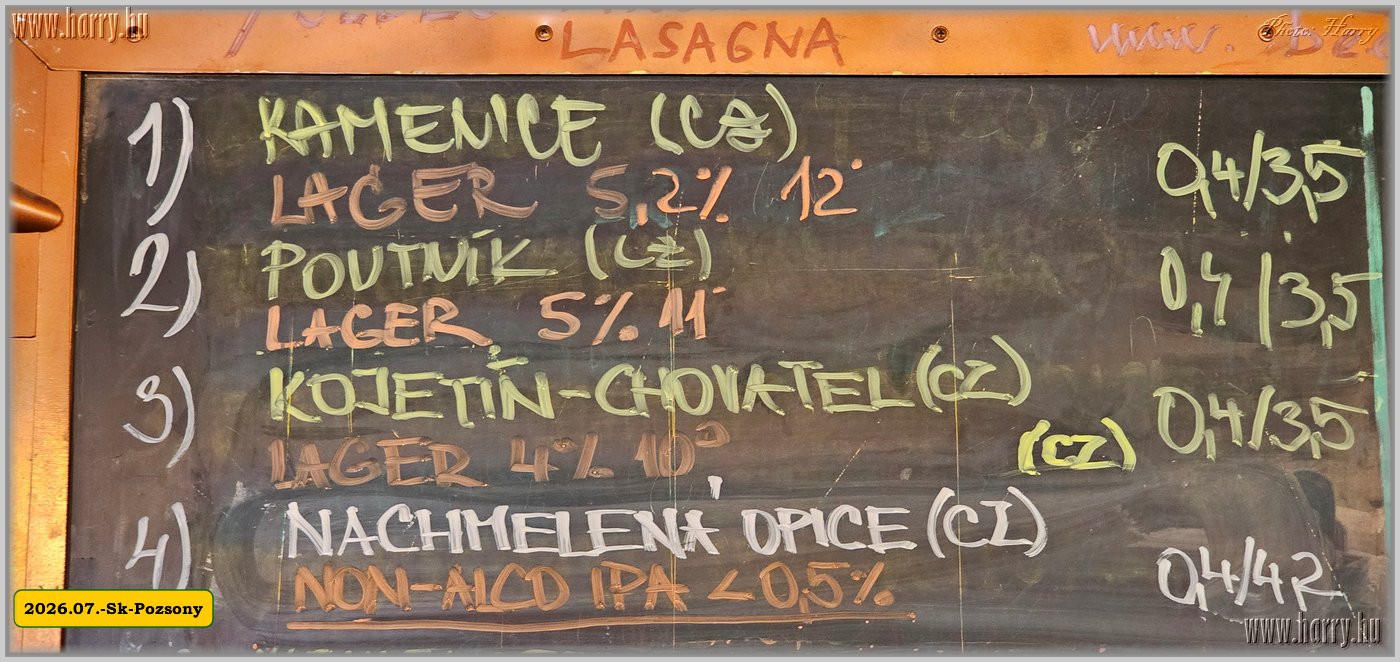 www.harry.hu
LASAGNA
www.
Photo: Harry
1) KAMENICE (CZ)
LAGER 5,2% 12°
0,4/3,5
2) POUTNÍK (CZ)
LAGER 5% 11°
0,4/3,5
3) KOJETÍN-CHOVATEL (CZ)
LAGER 4% 10°
(CZ)
0,4/3,5
4) NACHMELENÁ OPICE (CZ)
NON-ALCO IPA <0,5%
0,4/4,2
2026.07.-Sk-Pozsony
www.harry.hu